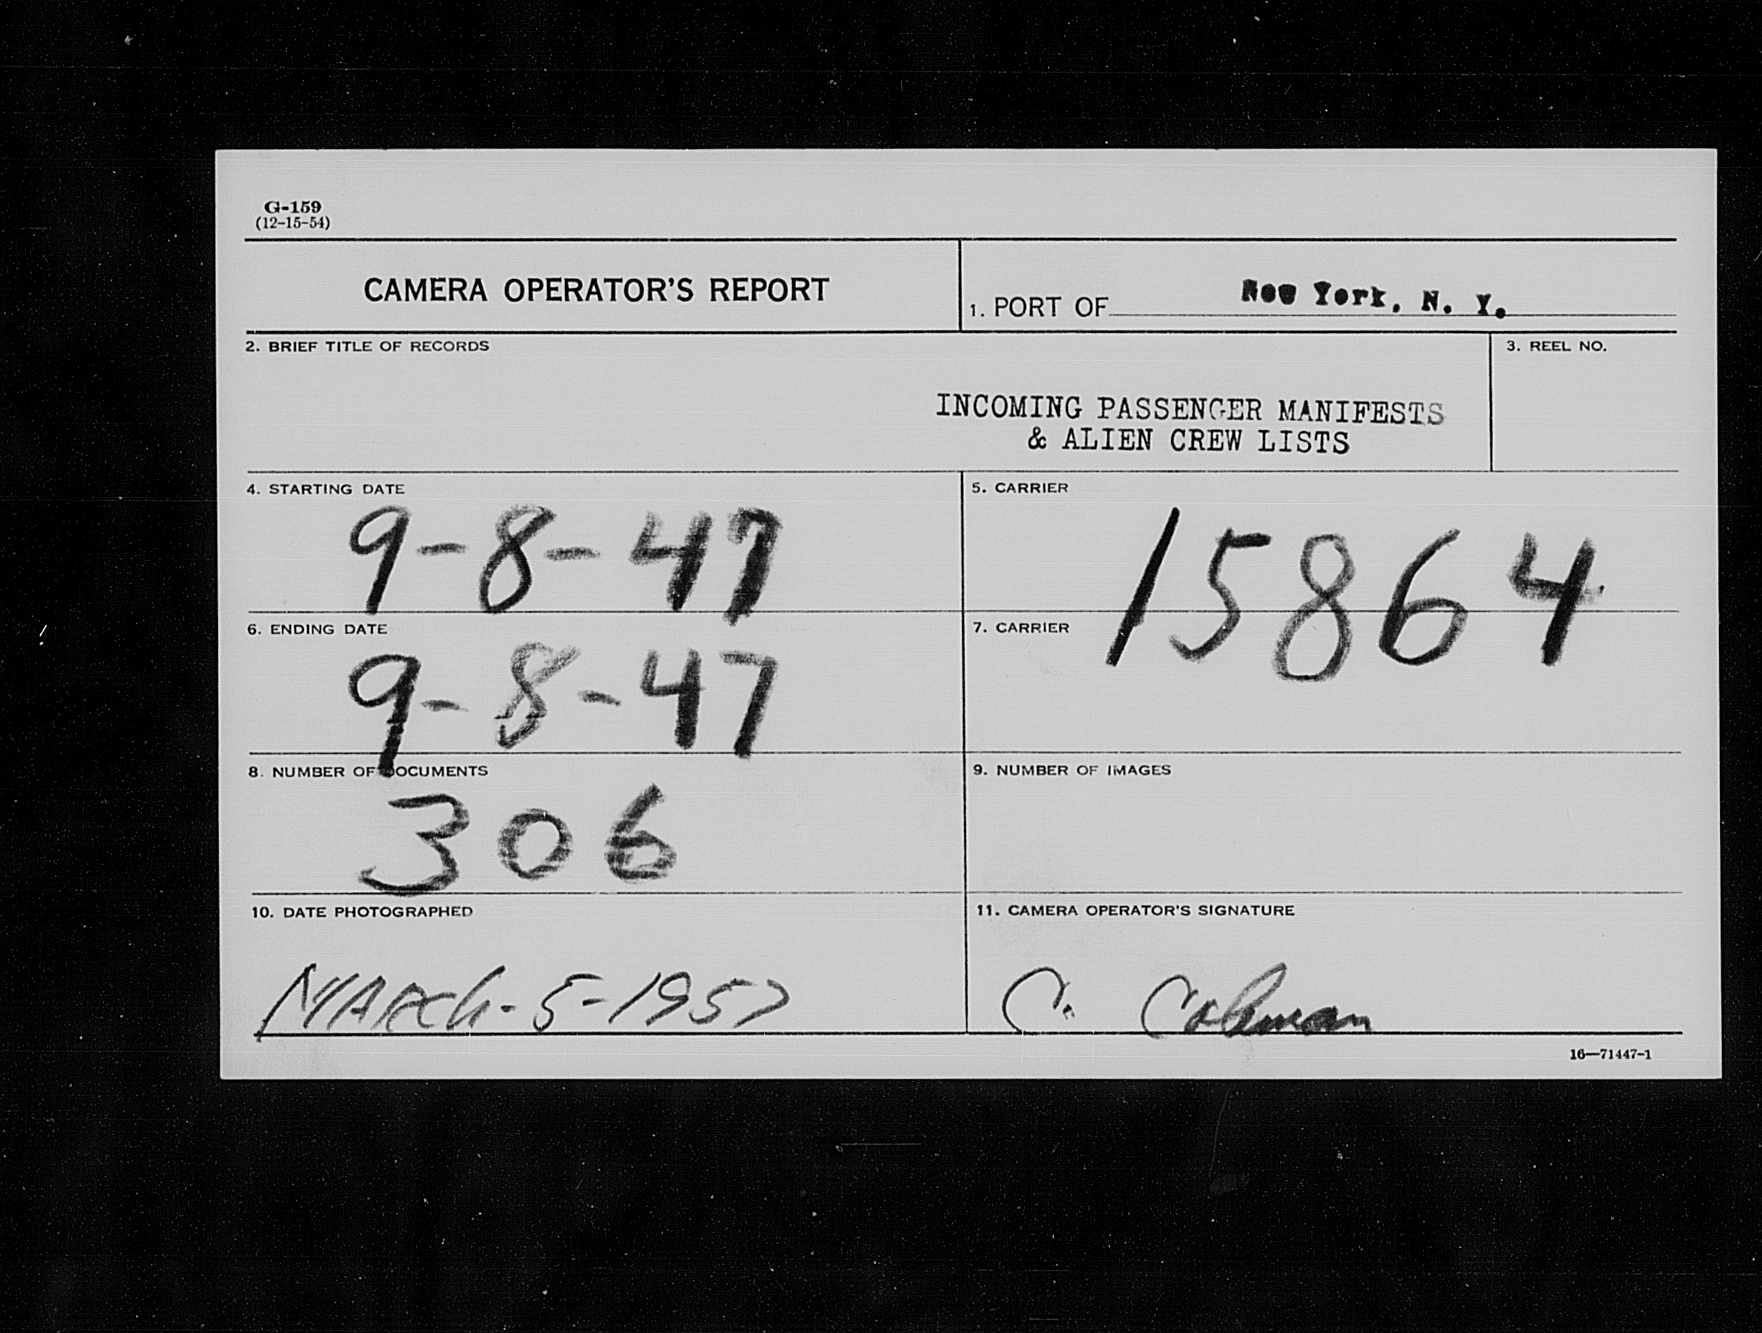 G-159
(12-15-54)
CAMERA OPERATOR'S REPORT
1. PORT OF New York, N. Y.
2. BRIEF TITLE OF RECORDS
3. REEL NO.
INCOMING PASSENGER MANIFESTS
& ALIEN CREW LISTS
4. STARTING DATE
9-8-47
5. CARRIER
15864
6. ENDING DATE
9-8-47
7. CARRIER
8. NUMBER OF DOCUMENTS
306
9. NUMBER OF IMAGES
10. DATE PHOTOGRAPHED
MARCH-5-1957
11. CAMERA OPERATOR'S SIGNATURE
C. Colman
16—71447-1